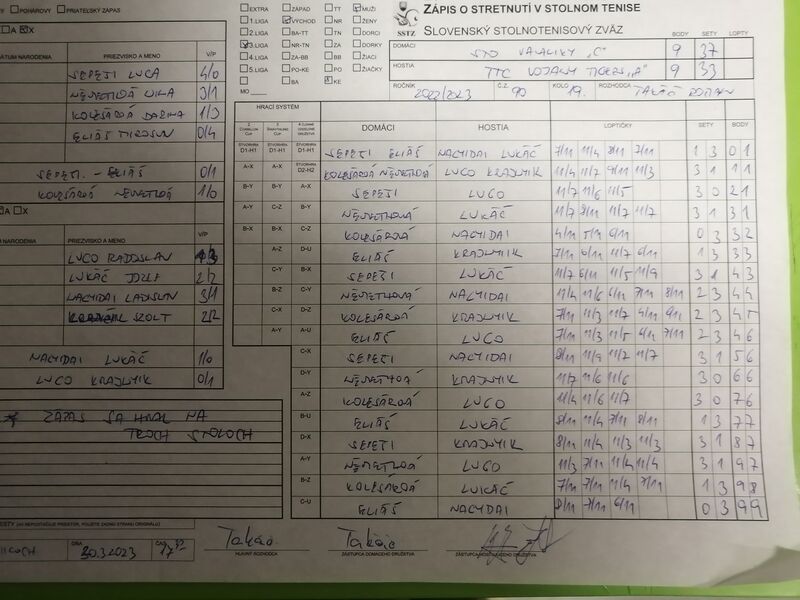 POHÁROVÝ PRIATEĽSKÝ ZÁPAS
EXTRA ZÁPAD TT MUŽI
1.LIGA VÝCHOD NR ŽENY
2.LIGA BA-TT TN DORCI
3.LIGA NR-TN ZA DORKY
4.LIGA ZA-BB BB ŽIACI
5.LIGA PO-KE PO ŽIAČKY
BA KE
MO
SSTZ
ZÁPIS O STRETNUTÍ V STOLNOM TENISE
SLOVENSKÝ STOLNOTENISOVÝ ZVÄZ
BODY SETY LOPTY
DOMÁCI STO VALALIKY "C" 9 37
HOSTIA TTC VOJANY TIGERS "A" 9 33
ROČNÍK 2022/2023 Č.Z. 90 KOLO 19. ROZHODCA TAKÁČ ROMAN
DÁTUM NARODENIA PRIEZVISKO A MENO V/P
SEPEŠI LUCA 4/0
3/1
KOLESÁROVÁ DARINA 1/3
ELIÁŠ 0/4
SEPEŠI - ELIÁŠ 0/1
1/0
A X
NARODENIA PRIEZVISKO A MENO V/P
LUCO RADOSLAV
LUKÁČ JOZEF 2/2
NAGYIDAI LADISLAV 3/1
ZSOLT 2/2
NAGYIDAI LUKÁČ 1/0
LUCO KRAJNYIK 0/1
* ZÁPAS SA HRAL NA
TROCH STOLOCH
HRACÍ SYSTÉM DOMÁCI HOSTIA LOPTIČKY SETY BODY
D1-H1 D1-H1 D1-H1 SEPEŠI ELIÁŠ NAGYIDAI LUKÁČ 7/11 11/4 9/11 7/11 1 3 0 1
A-X A-X D2-H2 LUCO KRAJNYIK 11/4 11/7 9/11 11/3 3 1 1 1
B-Y B-Y A-X SEPEŠI LUCO 11/7 11/6 11/5 3 0 2 1
A-Y C-Z B-Y LUKÁČ 11/7 9/11 11/7 11/7 3 1 3 1
B-X B-X C-Z KOLESÁROVÁ NAGYIDAI 4/11 5/11 6/11 0 3 3 2
A-Z D-U ELIÁŠ KRAJNYIK 7/11 6/11 11/7 6/11 1 3 3 3
C-Y B-X SEPEŠI LUKÁČ 11/7 6/11 11/5 11/9 3 1 4 3
B-Z C-Y NAGYIDAI 11/4 11/6 6/11 7/11 8/11 2 3 4 4
C-X D-Z KOLESÁROVÁ KRAJNYIK 7/11 11/3 11/7 4/11 9/11 2 3 4 5
A-Y A-U ELIÁŠ LUCO 7/11 11/3 11/5 6/11 7/11 2 3 4 6
C-X SEPEŠI NAGYIDAI 8/11 11/9 11/2 11/7 3 1 5 6
D-Y KRAJNYIK 11/7 11/6 11/6 3 0 6 6
A-Z KOLESÁROVÁ LUCO 11/4 11/6 11/7 3 0 7 6
B-U ELIÁŠ LUKÁČ 8/11 11/4 7/11 8/11 1 3 7 7
D-X SEPEŠI KRAJNYIK 8/11 11/4 11/3 11/3 3 1 8 7
A-Y LUCO 11/3 7/11 11/4 11/4 3 1 9 7
B-Z KOLESÁROVÁ LUKÁČ 7/11 7/11 11/4 7/11 1 3 9 8
C-U ELIÁŠ NAGYIDAI 9/11 7/11 6/11 0 3 9 9
(AK NEPOSTAČUJE PRIESTOR, POUŽITE ZADNÚ STRANU ORIGINÁLU)
DŇA 30.3.2023 ČAS 17:30
Takáč Takáč
HLAVNÝ ROZHODCA ZÁSTUPCA DOMÁCEHO DRUŽSTVA ZÁSTUPCA HOSŤUJÚCEHO DRUŽSTVA